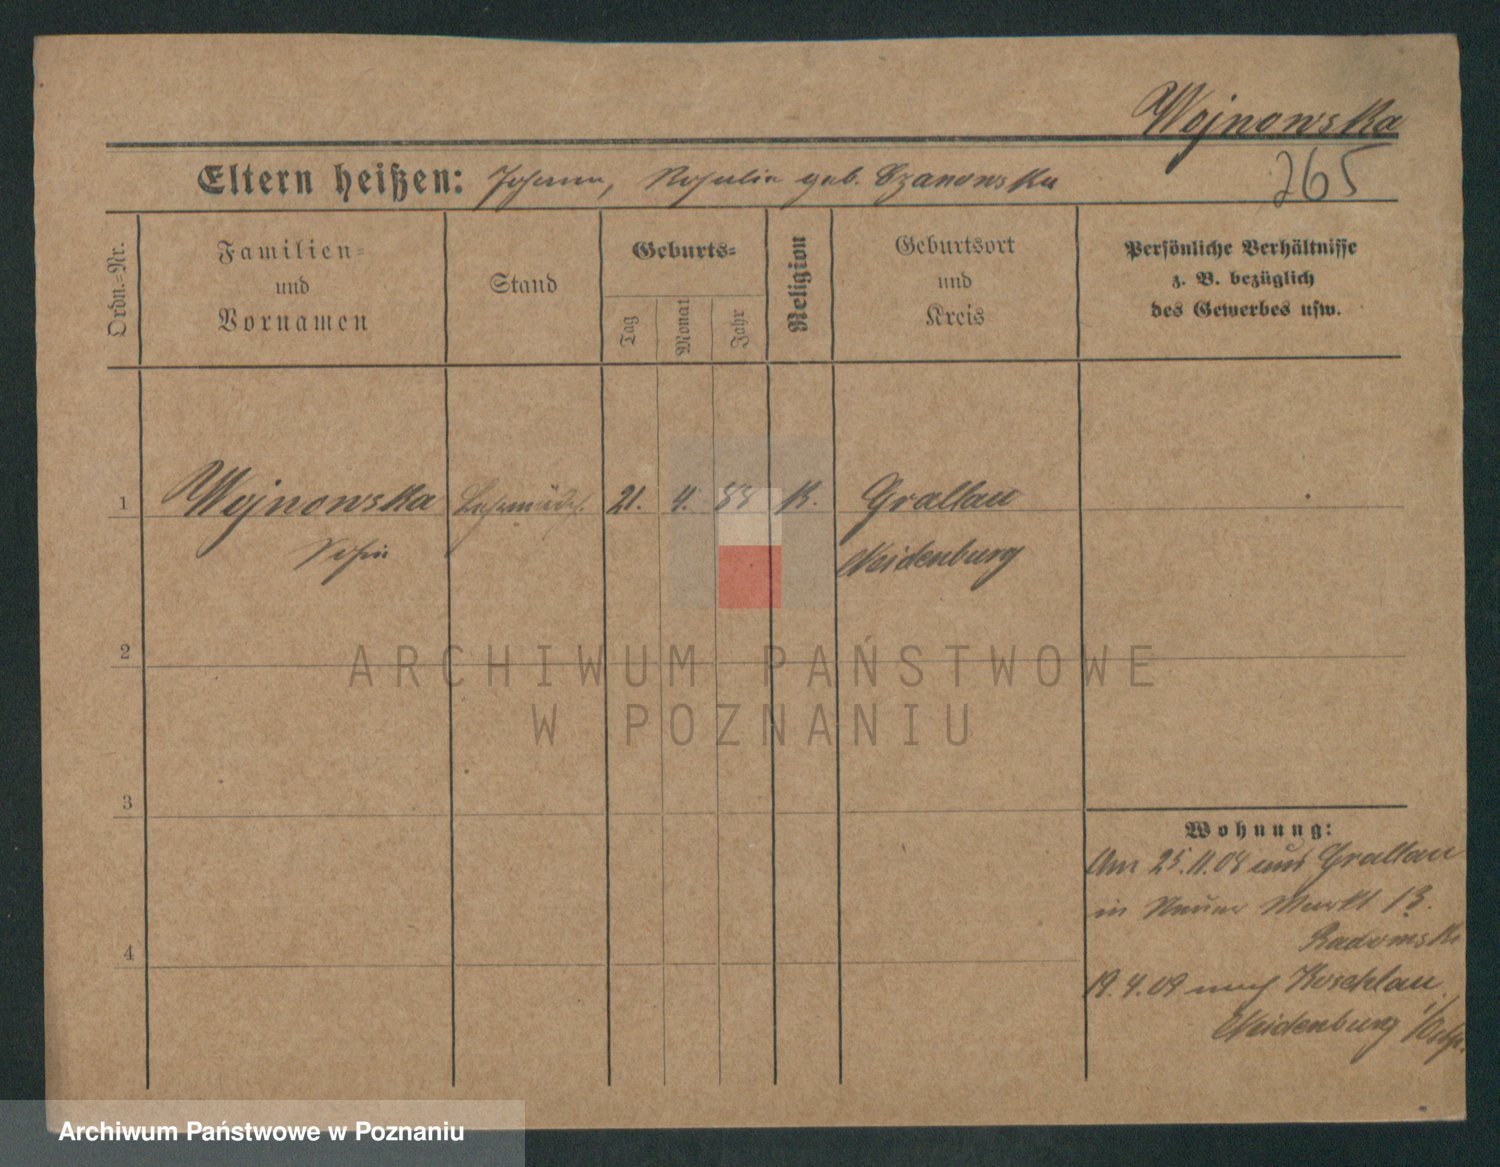 Wojnowska
265
Eltern heißen: Johann, Rosalie geb. Czanowska
Ordn.=Nr.
Familien=
und
Vornamen
Stand
Geburts=
Tag
Monat
Jahr
Religion
Geburtsort
und
Kreis
Persönliche Verhältnisse
z. B. bezüglich
des Gewerbes usw.
1
Wojnowska
21. 4. 88 K.
Grallau
Neidenburg
2
ARCHIWUM PAŃSTWOWE
W POZNANIU
3
4
Wohnung:
Am 25.11.08 aus Grallau
in Neuer Markt 13.
Radomski
19.4.09 nach Koschlau
Neidenburg i/Ostpr.
Archiwum Państwowe w Poznaniu